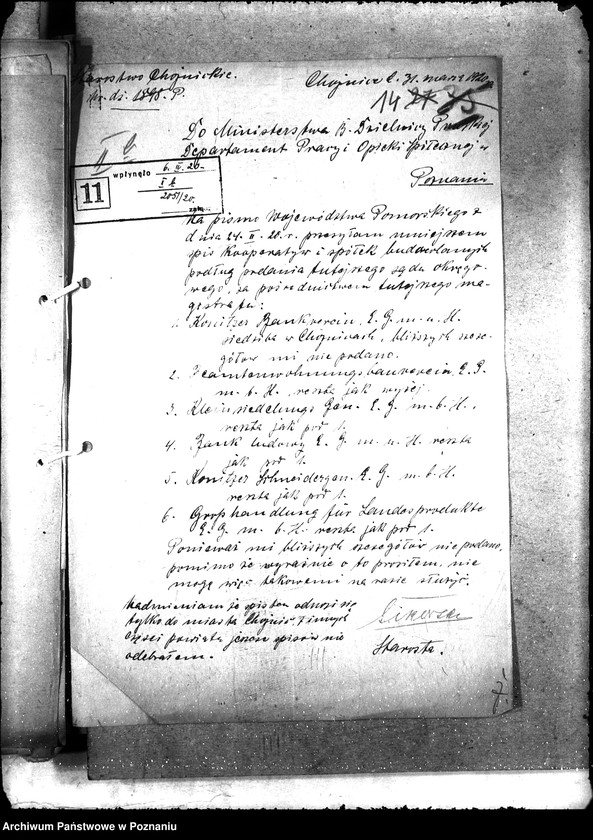 Starostwo Chojnickie.
Chojnice d. 31. marca 1920
No. dz. 1898. P.
14
Do Ministerstwa B. Dzielnicy Pruskiej
Departament Pracy i Opieki społecznej w
Poznaniu
11
wpłynęło 6. IV. 20.
2051/20.
Na pismo Województwa Pomorskiego z
dnia 24. II. 20. r. przesyłam niniejszem
spis Kooperatyw i spółek budowlanych
podług podania tutejszego sądu okręgo-
wego, za pośrednictwem tutejszego ma-
gistratu:
1. Konitzer Bankverein, E. G. m. u. H.
siedziba w Chojnicach, bliższych szcze-
gółów mi nie podano.
2. Beamtenwohnungsbauverein, E. G.
m. b. H. reszta jak wyżej.
3. Kleinsiedelungs Gen. E. G. m. b. H.,
reszta jak pod 1.
4. Bank ludowy E. G. m. u. H. reszta
jak pod 1.
5. Konitzer Schneidergen. E. G. m. b. H.
reszta jak pod 1.
6. Großhandlung für Landesprodukte
E. G. m. b. H. reszta jak pod 1.
Ponieważ mi bliższych szczegółów nie podano,
pomimo że wyraźnie o to prosiłem, nie
mogę więc takowemi na razie służyć.
Nadmieniam że spis ten odnosi się
tylko do miasta Chojnic, z innych
części powiatu jeszcze spisów nie
odebrałem.
Starosta.
Archiwum Państwowe w Poznaniu